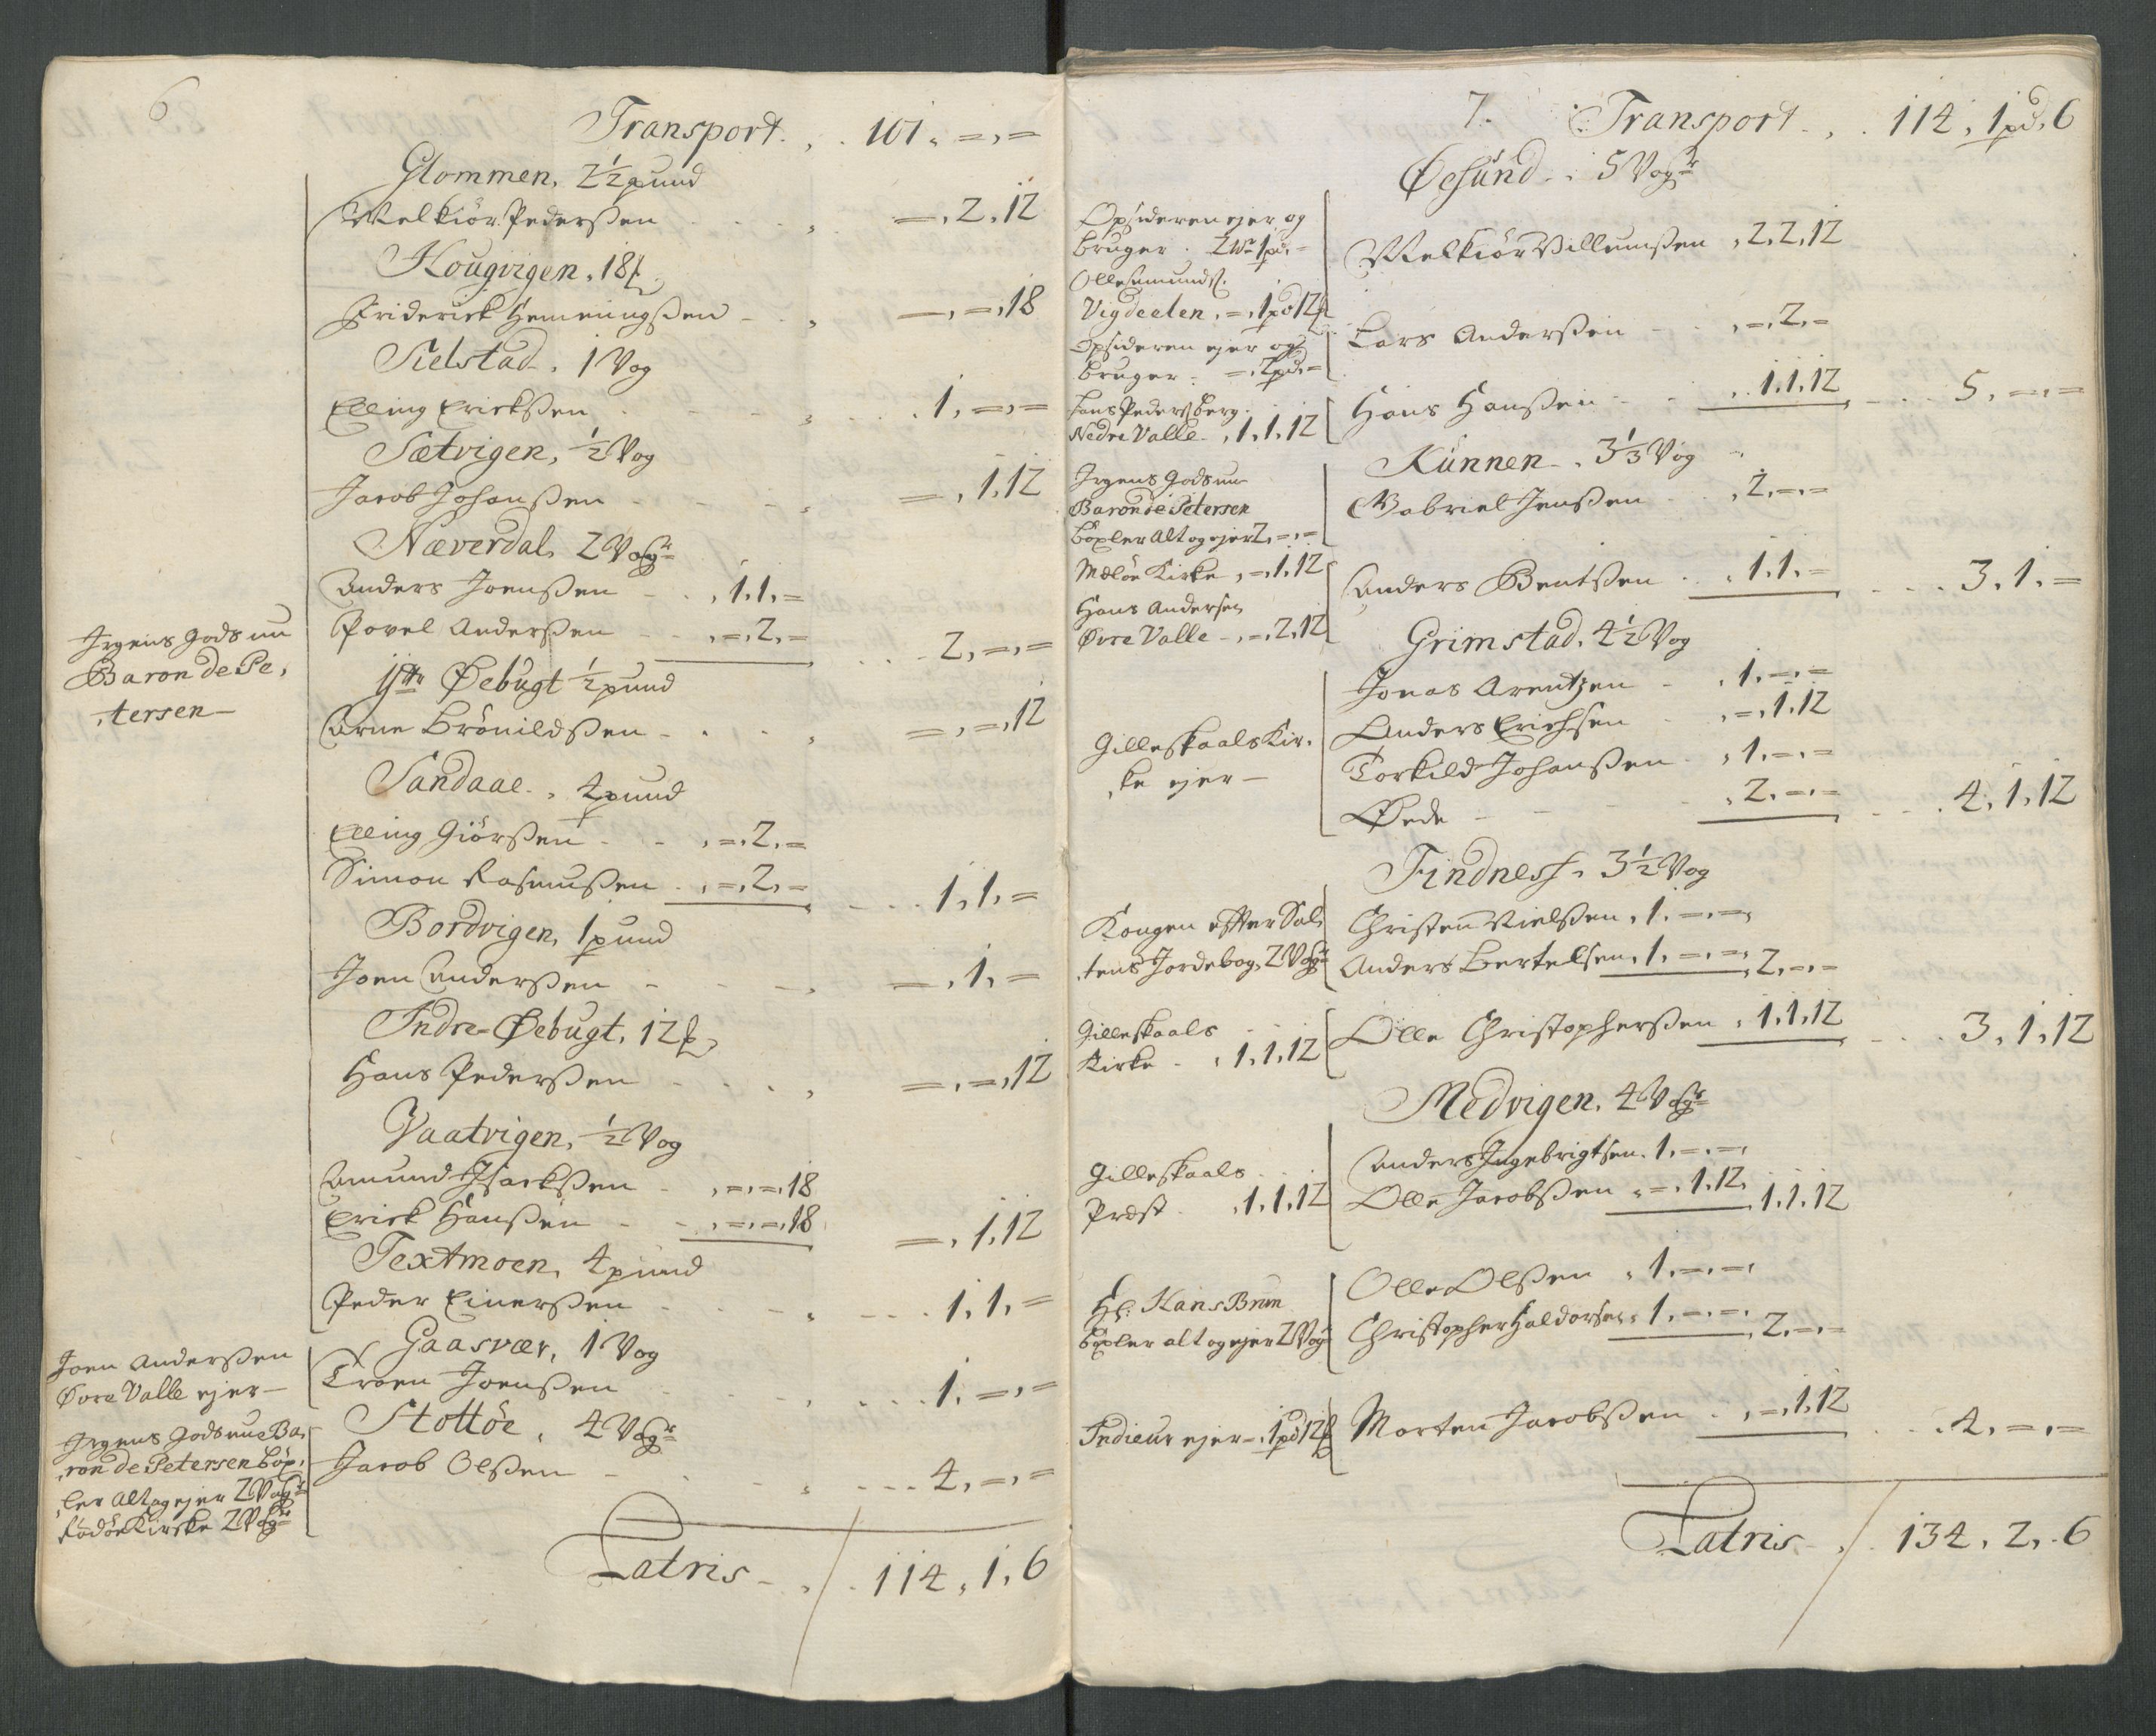 6
Transport . , . 101. =,=
Glommen, 2½ pund
Melkior Pederßen . . . , =, 2, 12
Hougvigen, 18 ℔
Friderick Hemmingßen - . , =, =, 18
Sielstad, 1 Vog
Elling Erickßen . . - - , . . . 1, =, =
Sætvigen, ½ Vog
Jacob Johanßen - - - - , =, 1, 12
Næverdal, 2 Vogr
Anders Joenßen - . , 1, 1, =
Irgens Gods nu
Baron de Pe,
,tersen -
Povel Anderßen - - , =, 2, = . . . 2, =, =
Ytr Øebugt ½ pund
Arne Brönildßen - . . . , =, =, 12
Sandaae . , 4 pund
Elling Giörßen - - , =, 2, =
Simon Rasmußen . , =, 2, = . . . 1, 1, =
Bordvigen, 1 pund
Joen Anderßen - - - , =, 1, =
Indre-Øebugt, 12 ℔
Hans Pederßen - . . , =, =, 12
Vaatvigen, ½ Vog
Amund Isackßen - , =, =, 18
Erick Hanßen - - , =, =, 18 =, 1, 12
Textmoen, 4 pund
Peder Einerßen - - - , - - - 1, 1, =
Joen Anderßen
Øvre Valle ejer -
Gaasvær, 1 Vog
Troen Joenßen - - - , . . . 1, =, =
Irgens Gods nu Ba,
,ron de Petersen böx,
,ler Alt og ejer 2 Vogr
Rödöe Kirke 2 Vogr
Stottöe, 4 Vogr
Jacob Olßen - . . , - - - 4, =, =
Latris - . , / . 114, 1, 6
7. Transport . , . 114, 1 pd, 6
Øesund . . 5 Vogr
Opsideren ejer og
bruger . 2 W 1 pd, =
Melkior Villumßen , 2, 2, 12
Olle Amunds.
Vigdeelen, =, 1 pd 12 ℔
Opsideren ejer og
bruger . =, 2 pd, =
Lars Anderßen - - , =, 2, =
Hans Peders berg.
Nedre Valle , 1, 1, 12
Hans Hanßen - - . . 1, 1, 12 - . . 5, =, =
Kunnen . 3⅓ Vog
Irgens Gods nu
Baron de Petersen
böxler Alt og ejer 2, =, =
Gabriel Jenßen - - , 2, =, =
Meløe Kirke , =, 1, 12
Hans Andersen
Øvre Valle - , =, 2, 12
Anders Bentßen . . , 1, 1, = - . . . 3, 1, =
Grimstad, 4½ Vog
Gilleskaals Kir,
,ke ejer -
Jonas Arentzen - , 1, =, =
Anders Erichsen - , =, 1, 12
Torkild Johanßen - , 1, =, =
Øede - - - - , 2, =, = - . . . 4, 1, 12
Findness, 3½ Vog
Kongen efter Sal,
,tens Jordebog, 2 Vogr
Christen Nielßen , 1, =, =,
Anders Bertelsen, 1, =, =, , 2, =, =
Gilleskaals
Kirke - , 1, 1, 12
Olle Christopherßen , 1, 1, 12 - . . . 3, 1, 12
Medvigen, 4 Vogr
Gilleskaals
Præst . , 1, 1, 12
Anders Ingebrigtsen, 1, =, =,
Olle Jacobßen , =, 1, 12, , 1, 1, 12
Hr: Hans Brun
böxler alt og ejer 2 Vogr
Olle Olßen , 1, =, =,
Christopher Haldorsen , 1, =, =, , 2, =, =
Indieur ejer =, 1 pd 12 ℔
Morten Jacobßen . , =, 1, 12 . . . 4, =, =
Latris - . , / . 134, 2, 6